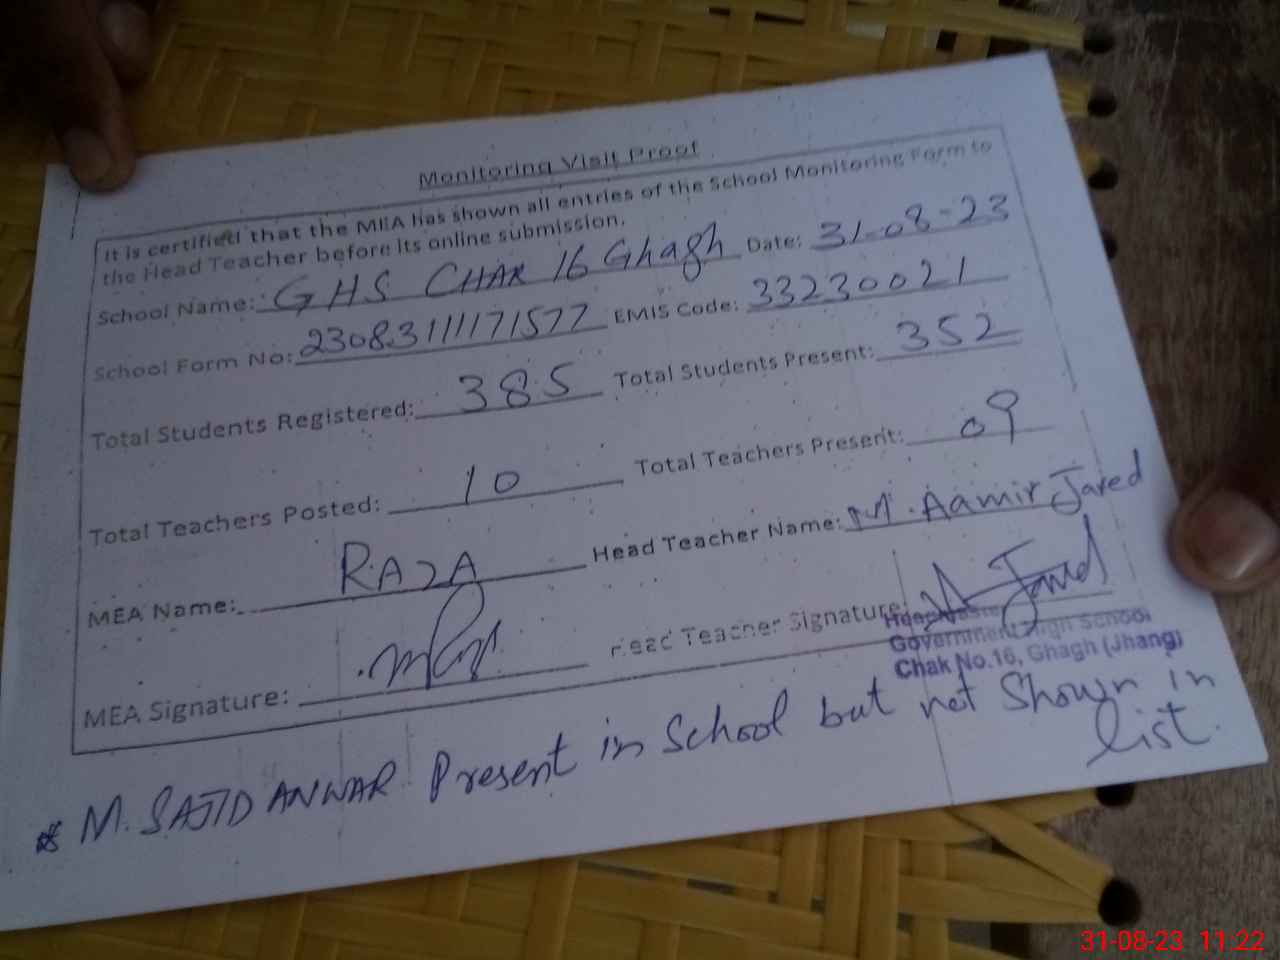 Monitoring Visit Proof
It is certified that the MEA has shown all entries of the School Monitoring Form to
the Head Teacher before its online submission.
School Name: GHS CHAK 16 Ghagh Date: 31-08-23
School Form No: 23083111171577 EMIS Code: 33230021
Total Students Registered: 385 Total Students Present: 352
Total Teachers Posted: 10 Total Teachers Present: 09
MEA Name: RAZA Head Teacher Name: M. Aamir Javed
MEA Signature: Head Teacher Signature: Javed
Headmaster
Government High School
Chak No.16, Ghagh (Jhang)
* M. SAJID ANWAR Present in School but not Shown in
list.
31-08-23 11:22